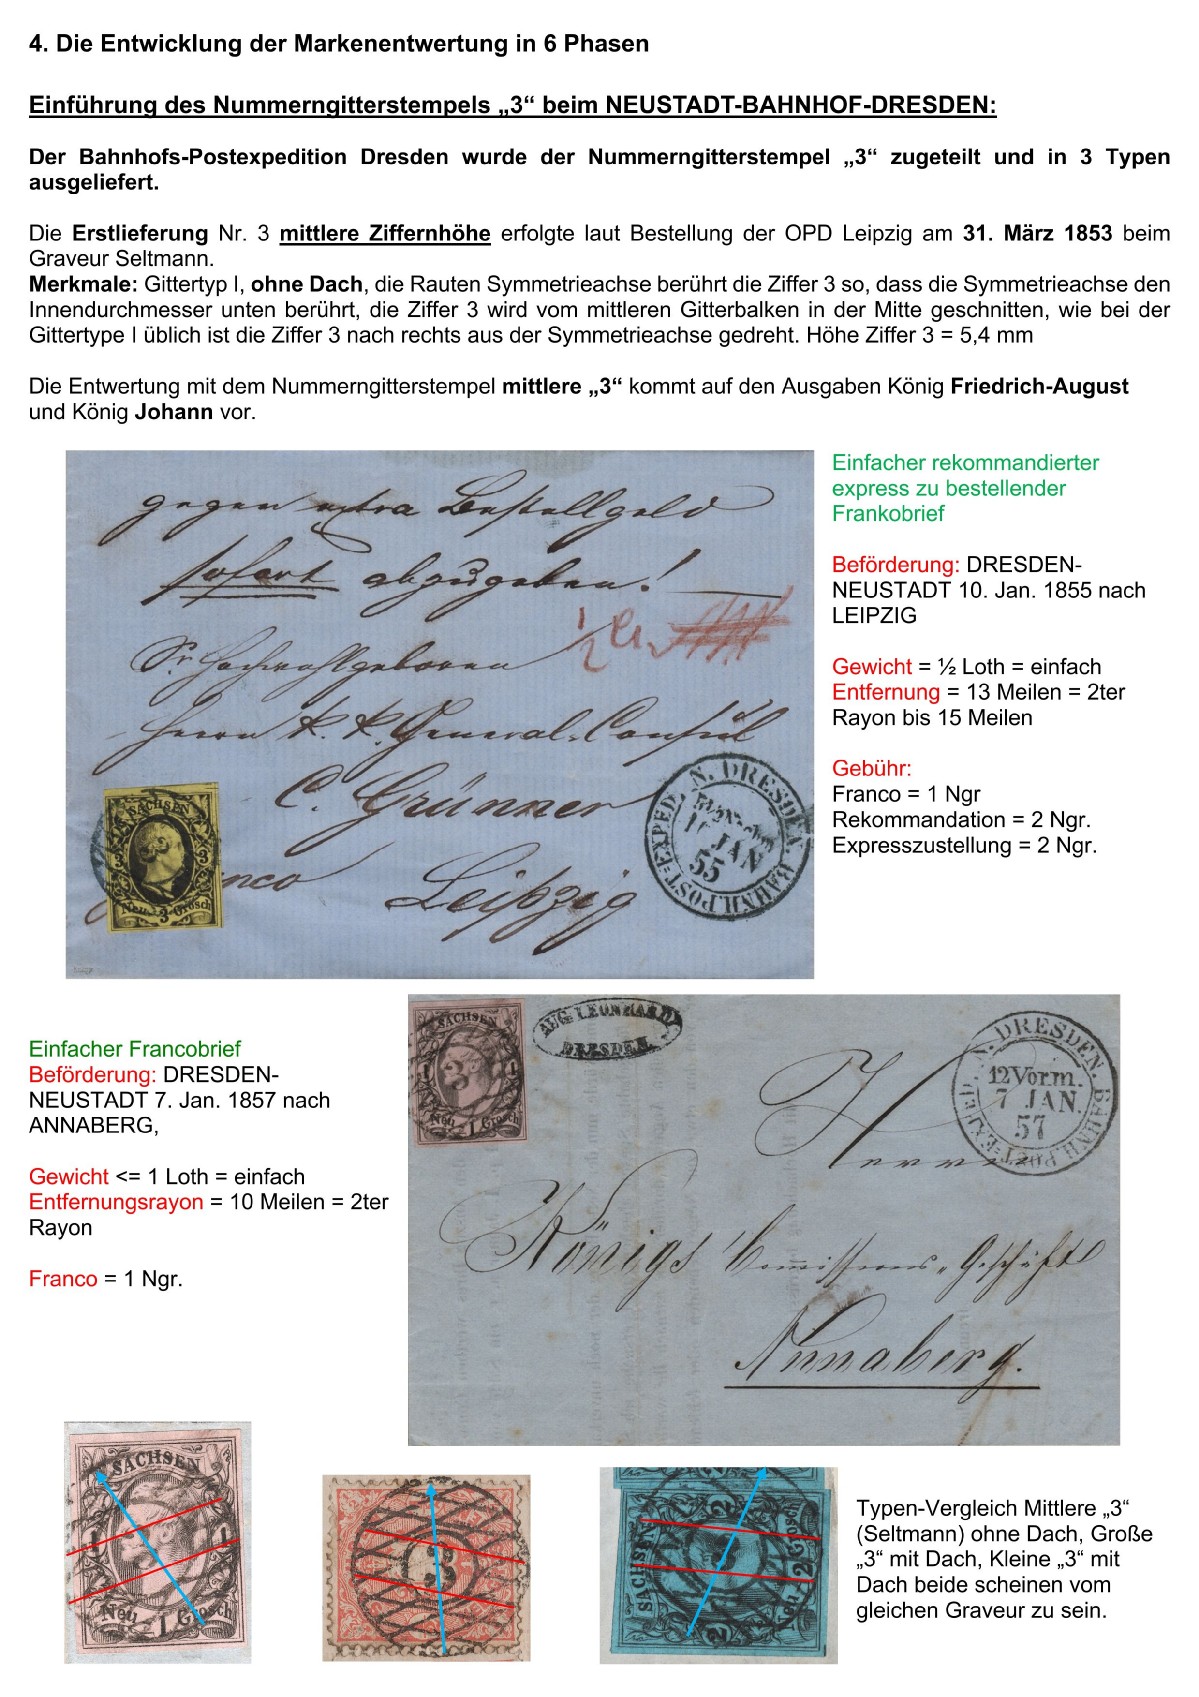 4. Die Entwicklung der Markenentwertung in 6 Phasen
Einführung des Nummerngitterstempels „3“ beim NEUSTADT-BAHNHOF-DRESDEN:
Der Bahnhofs-Postexpedition Dresden wurde der Nummerngitterstempel „3“ zugeteilt und in 3 Typen
ausgeliefert.
Die Erstlieferung Nr. 3 mittlere Ziffernhöhe erfolgte laut Bestellung der OPD Leipzig am 31. März 1853 beim
Graveur Seltmann.
Merkmale: Gittertyp I, ohne Dach, die Rauten Symmetrieachse berührt die Ziffer 3 so, dass die Symmetrieachse den
Innendurchmesser unten berührt, die Ziffer 3 wird vom mittleren Gitterbalken in der Mitte geschnitten, wie bei der
Gittertype I üblich ist die Ziffer 3 nach rechts aus der Symmetrieachse gedreht. Höhe Ziffer 3 = 5,4 mm
Die Entwertung mit dem Nummerngitterstempel mittlere „3“ kommt auf den Ausgaben König Friedrich-August
und König Johann vor.
gegen extra Bestellgeld
sofort abzugeben!
1/2
Sr. Hochwohlgeboren
Herrn k. k. General-Consul
C. Grünner
Leipzig
SACHSEN
3 3
Neu 3 Grosch
N. DRESDEN BAHNH. POST-EXPED.
JAN
55
Einfacher rekommandierter
express zu bestellender
Frankobrief
Beförderung: DRESDEN-
NEUSTADT 10. Jan. 1855 nach
LEIPZIG
Gewicht = ½ Loth = einfach
Entfernung = 13 Meilen = 2ter
Rayon bis 15 Meilen
Gebühr:
Franco = 1 Ngr
Rekommandation = 2 Ngr.
Expresszustellung = 2 Ngr.
Einfacher Francobrief
Beförderung: DRESDEN-
NEUSTADT 7. Jan. 1857 nach
ANNABERG,
Gewicht <= 1 Loth = einfach
Entfernungsrayon = 10 Meilen = 2ter
Rayon
Franco = 1 Ngr.
SACHSEN
Neu 1 Grosch
AUG. LEONHARDI
DRESDEN
N. DRESDEN. BAHNH. POST-EXPED.
12 Vorm.
7 JAN.
57
Herrn
Königs Commissions-Geschäft
Annaberg.
SACHSEN
Neu 1 Grosch
3
SACHSEN
Neu 2 Grosch
Typen-Vergleich Mittlere „3“
(Seltmann) ohne Dach, Große
„3“ mit Dach, Kleine „3“ mit
Dach beide scheinen vom
gleichen Graveur zu sein.